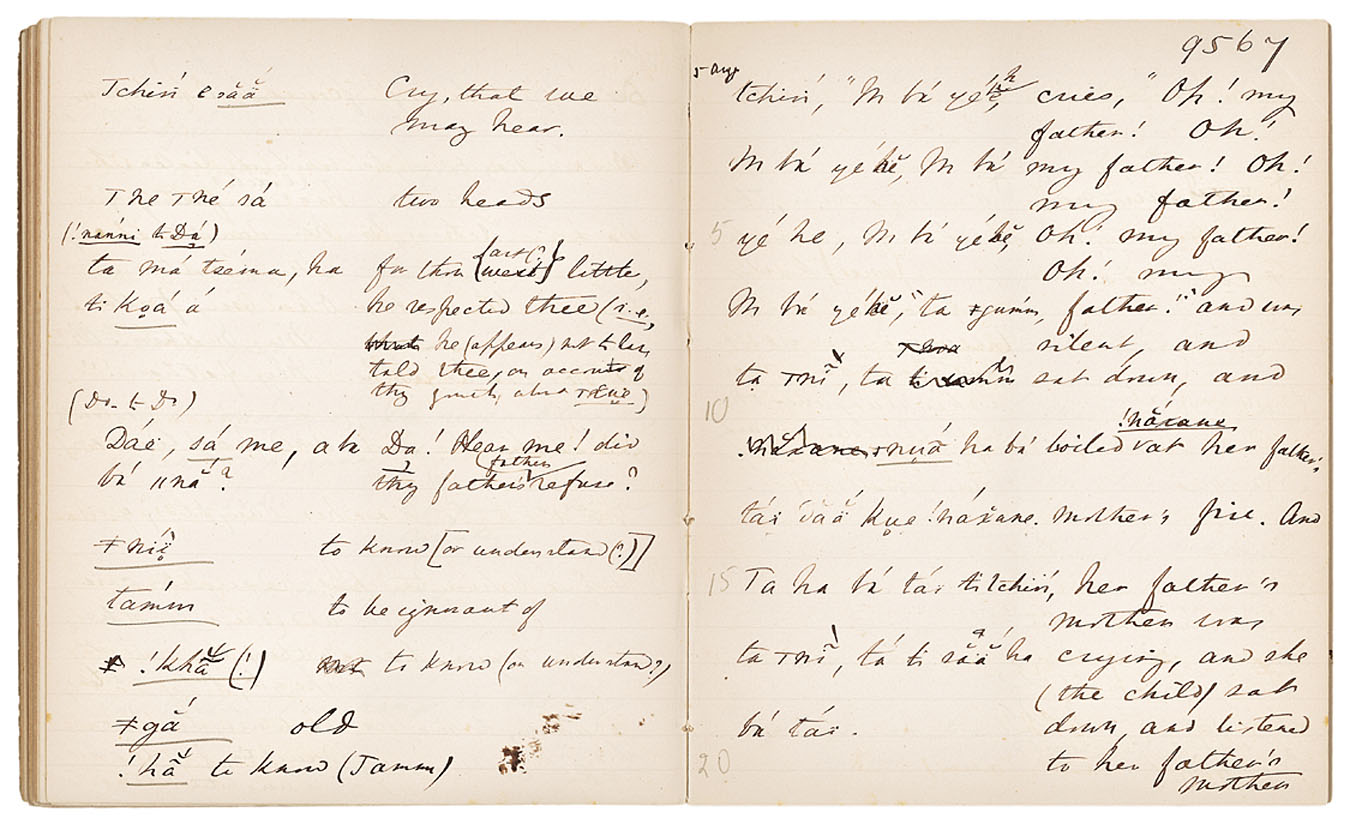 Tchiń e săă Cry, that we
may hear.
Tne Tné sá two heads
(!nanni to Dá)
ta má tséma, ha for thou [art(?) (went)] little,
ti Koá á he respected thee (i.e.,
he (appears) not to have
told thee, on account of
thy youth, about
(Do. to Do)
Dáe, sá me, a ta Da! Hear me! did
bá ǁnă? thy father refuse?
ǂníi to know [or understand (?)]
támm to be ignorant of
!khă (!) not to know (or understand?)
ǂgá old
!hă to know (Tamm)
9567
5 Aug.
tchiń, "M bá yé hĕ, cries, "Oh! my
father! Oh!
M bá yé hĕ, M bá my father! Oh!
my father!
5 yé he, M bá yé hĕ, Oh! my father!
Oh! my
M bá yé hĕ," ta ǂgumm, father!" and was
silent, and
ta Tnĭ, ta ti sat down, and
10 !năxane
!năxane nuá ha bá boiled at her father's
tái dăă Kue !náxane. mother's fire. And
15 Ta ha bá tái ti tchiń, her father's
mother was
ta Tnĭ, tá ti săă ha crying, and she
(the child) sat
bá tái. down, and listened
20 to her father's
mother